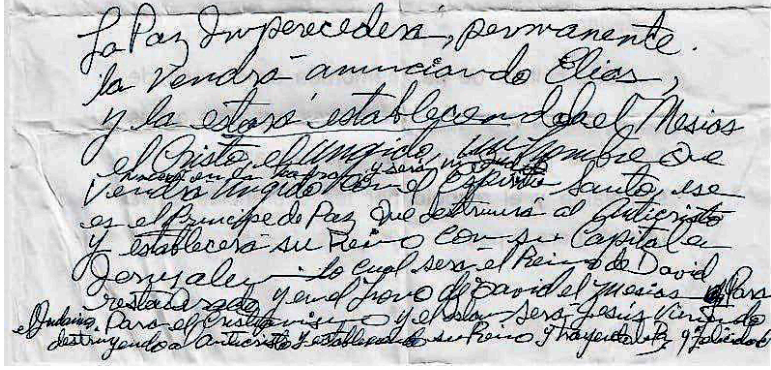 La Paz Imperecedera, permanente.
la Vendrá anunciando Elias,
y la estará estableciendola el Mesias
el Cristo, el Ungido, un hombre que
nacerá en la tierra y será
Vendrá Ungido con el Espiritu Santo, ese
es el Principe de Paz que destruirá al Anticristo
y establecerá su Reino con su Capital en
Jerusalen lo cual será el Reino de David
restaurado y en el trono de David el Mesias Para
el Judaismo. Para el Cristianismo y el Islam será Jesús Viniendo
destruyendo a anticristo y estableciendo su Reino y trayendo la Paz y felicidad